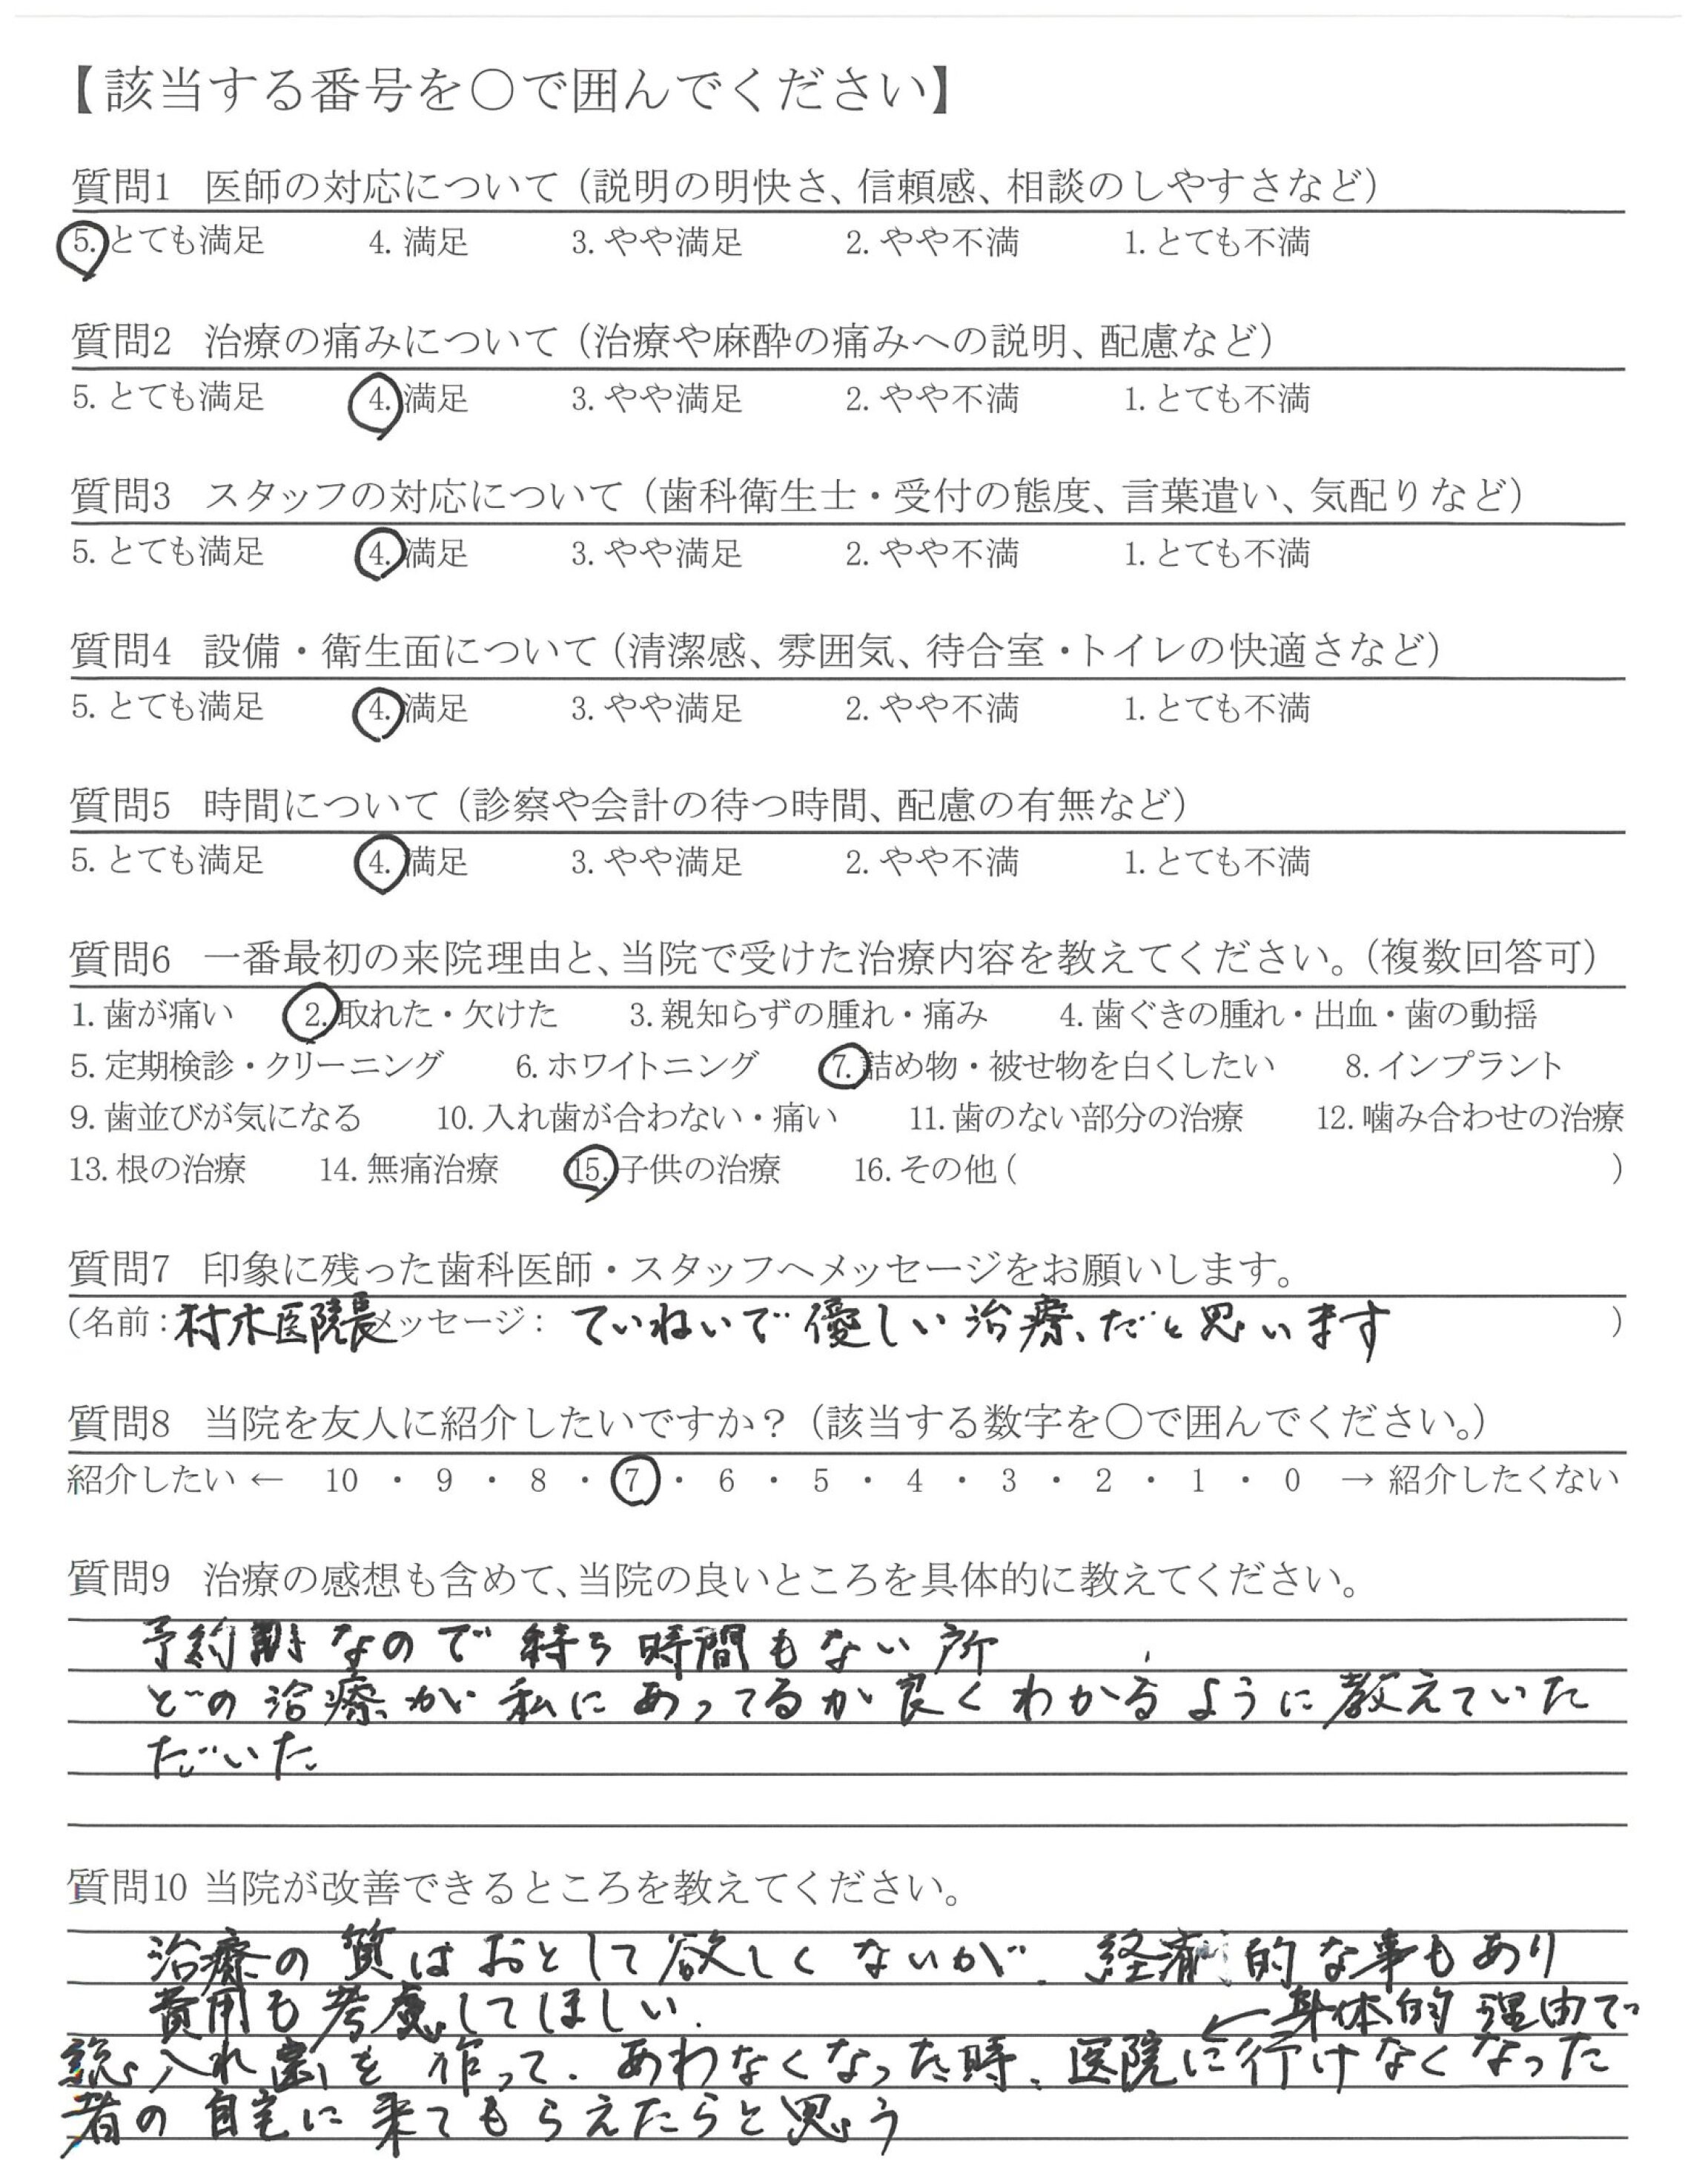 【該当する番号を○で囲んでください】
質問1 医師の対応について（説明の明快さ、信頼感、相談のしやすさなど）
5. とても満足 4. 満足 3. やや満足 2. やや不満 1. とても不満
質問2 治療の痛みについて（治療や麻酔の痛みへの説明、配慮など）
5. とても満足 4. 満足 3. やや満足 2. やや不満 1. とても不満
質問3 スタッフの対応について（歯科衛生士・受付の態度、言葉遣い、気配りなど）
5. とても満足 4. 満足 3. やや満足 2. やや不満 1. とても不満
質問4 設備・衛生面について（清潔感、雰囲気、待合室・トイレの快適さなど）
5. とても満足 4. 満足 3. やや満足 2. やや不満 1. とても不満
質問5 時間について（診察や会計の待つ時間、配慮の有無など）
5. とても満足 4. 満足 3. やや満足 2. やや不満 1. とても不満
質問6 一番最初の来院理由と、当院で受けた治療内容を教えてください。（複数回答可）
1. 歯が痛い 2. 取れた・欠けた 3. 親知らずの腫れ・痛み 4. 歯ぐきの腫れ・出血・歯の動揺
5. 定期検診・クリーニング 6. ホワイトニング 7. 詰め物・被せ物を白くしたい 8. インプラント
9. 歯並びが気になる 10. 入れ歯が合わない・痛い 11. 歯のない部分の治療 12. 噛み合わせの治療
13. 根の治療 14. 無痛治療 15. 子供の治療 16. その他（ ）
質問7 印象に残った歯科医師・スタッフへメッセージをお願いします。
（名前：村木医院長 メッセージ： ていねいで優しい治療だと思います ）
質問8 当院を友人に紹介したいですか？（該当する数字を○で囲んでください。）
紹介したい ← 10 ・ 9 ・ 8 ・ 7 ・ 6 ・ 5 ・ 4 ・ 3 ・ 2 ・ 1 ・ 0 → 紹介したくない
質問9 治療の感想も含めて、当院の良いところを具体的に教えてください。
予約なので待ち時間もない所
どの治療が私にあってるか良くわかるように教えていた
だいた
質問10 当院が改善できるところを教えてください。
治療の質はおとして欲しくないが、経済的な事もあり
費用も考慮してほしい。 ←身体的理由で
総入れ歯を作って、あわなくなった時、医院に行けなくなった
者の自宅に来てもらえたらと思う